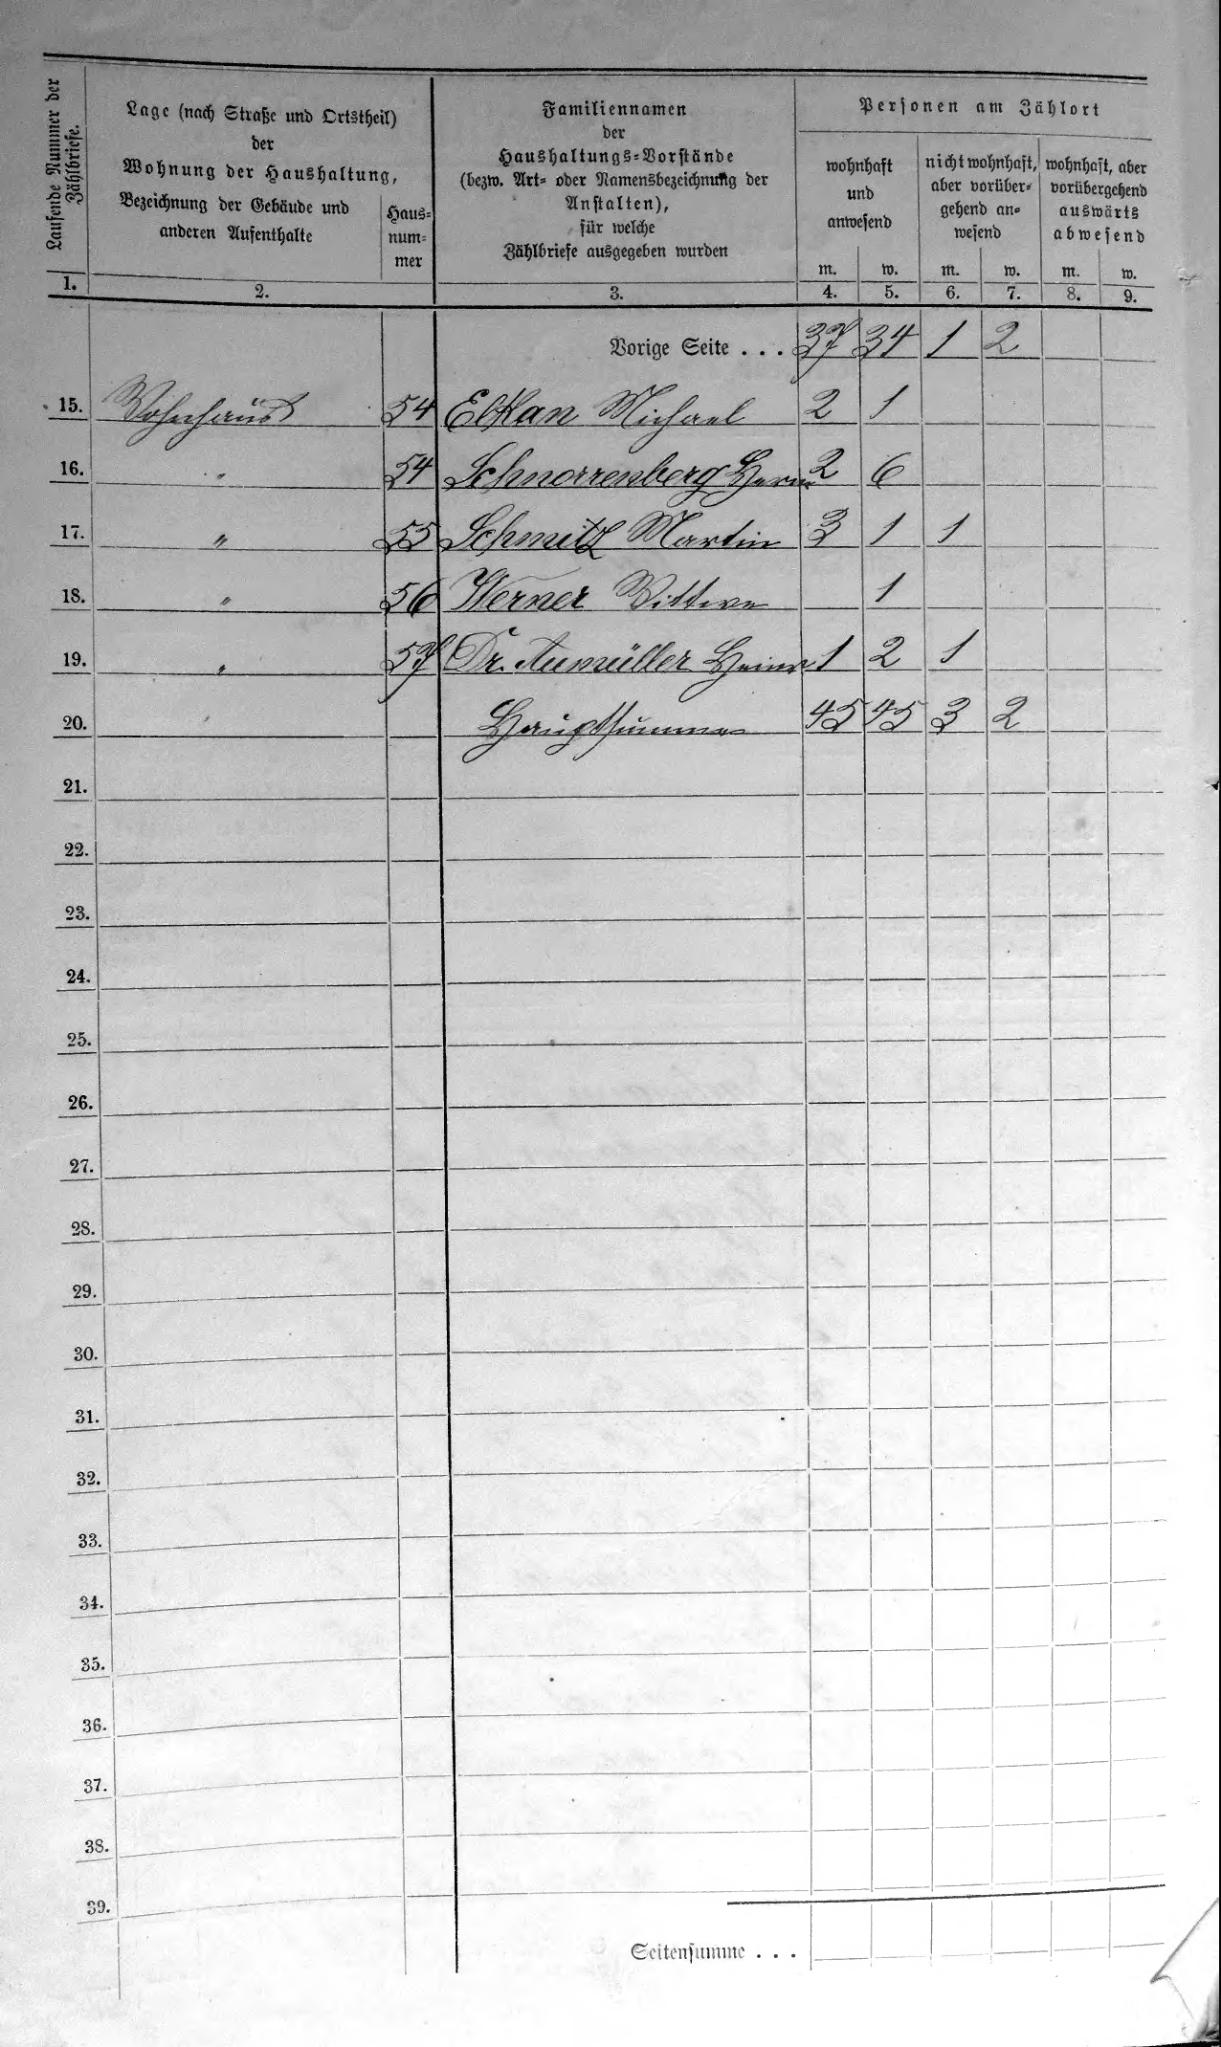 Laufende Nummer der
Zählbriefe.
Lage (nach Straße und Ortstheil)
der
Wohnung der Haushaltung,
Bezeichnung der Gebäude und
anderen Aufenthalte
Haus-
num-
mer
Familiennamen
der
Haushaltungs-Vorstände
(bezw. Art- oder Namensbezeichnung der
Anstalten),
für welche
Zählbriefe ausgegeben wurden
Personen am Zählort
wohnhaft
und
anwesend
nicht wohnhaft,
aber vorüber-
gehend an-
wesend
wohnhaft, aber
vorübergehend
auswärts
abwesend
m. w. m. w. m. w.
1. 2. 3. 4. 5. 6. 7. 8. 9.
Vorige Seite . . . 37 34 1 2
15. Wohnhaus 54 Elkan Michael 2 1
16. " 54 Schnorrenberg Herm 2 6
17. " 55 Schmitz Martin 3 1 1
18. " 56 Werner Wittwe 1
19. " 57 Dr. Aumüller Heinr 1 2 1
20. Hauptsumme 45 45 3 2
21.
22.
23.
24.
25.
26.
27.
28.
29.
30.
31.
32.
33.
34.
35.
36.
37.
38.
39.
Seitensumme . . .